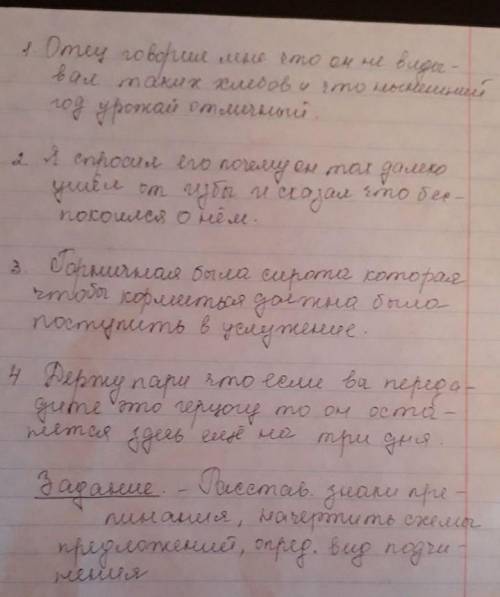 1 Отец говорил мне что он не виды-
вал таких хлебов и что нынешний
год урожай отличный.
2. Я спросил его почему он так далеко
ушёл от избы и сказал что бес-
покоился о нём.
3. Горничная была сирота которая
чтобы кормиться должна была
поступить в услужение.
4 Держу пари что если ва переда-
дите это герцогу то он оста-
нется здесь ещё на три дня.
Задание. - Расстав. знаки пре-
пинания, начертить схемы
предложений, опред. вид подчи-
нения